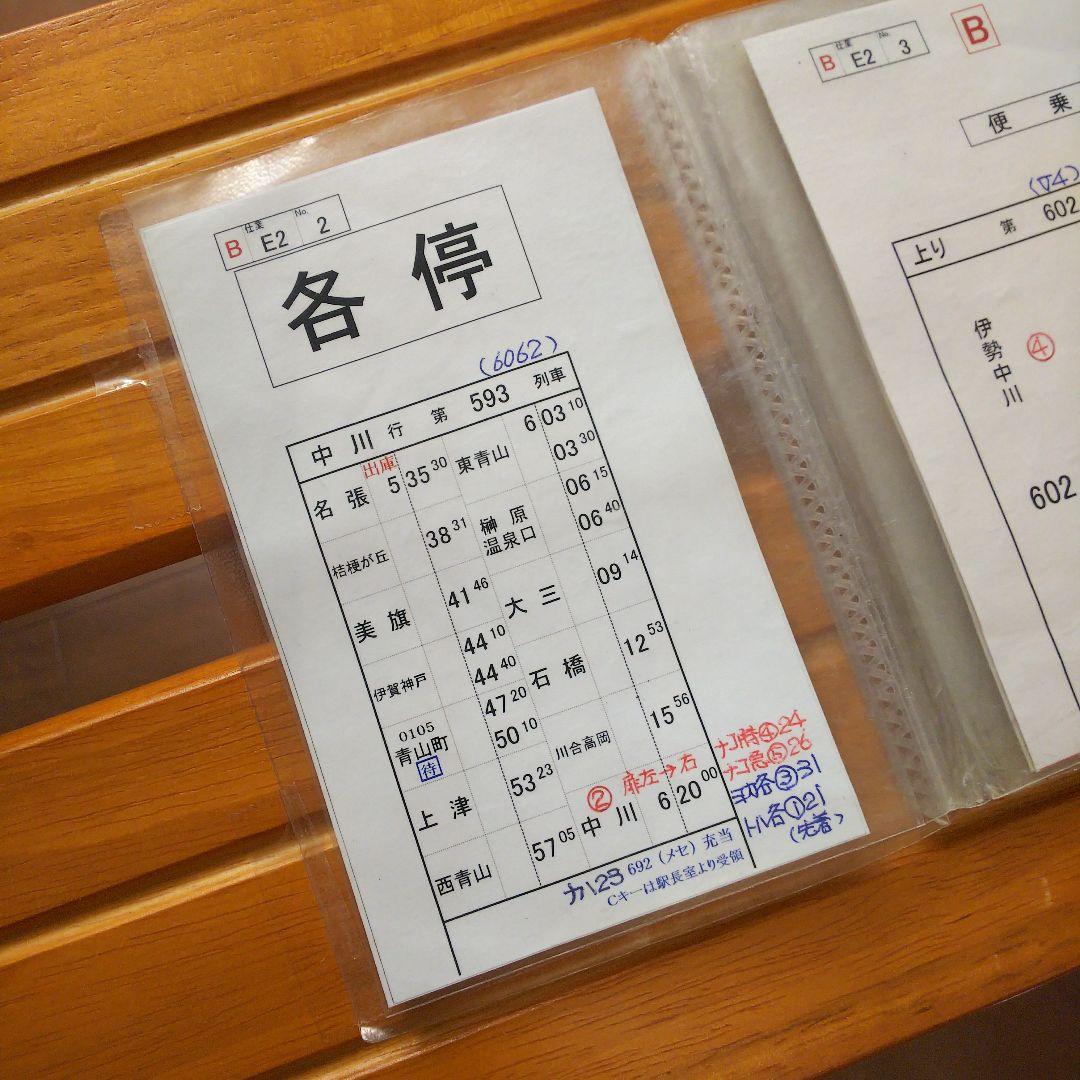 B 仕業 E2 No. 2
各停
(6062)
中川行 第 593 列車
出庫
名張 5 35 30
桔梗が丘 38 31
美旗 41 46
伊賀神戸 44 10
44 40
0105
青山町 47 20
待 50 10
上津 53 23
西青山 57 05
東青山 6 03 10
03 30
榊原温泉口 06 15
06 40
大三 09 14
石橋 12 53
川合高岡 15 56
② 扉左→右
中川 6 20 00
ナコ特④24
ナコ急⑤26
③31
各①21
(先着)
692(メセ)充当
Cキーは駅長室より受領
B 仕業 E2 No. 3
B
便乗
上り 第 602
伊勢中川 ④
602